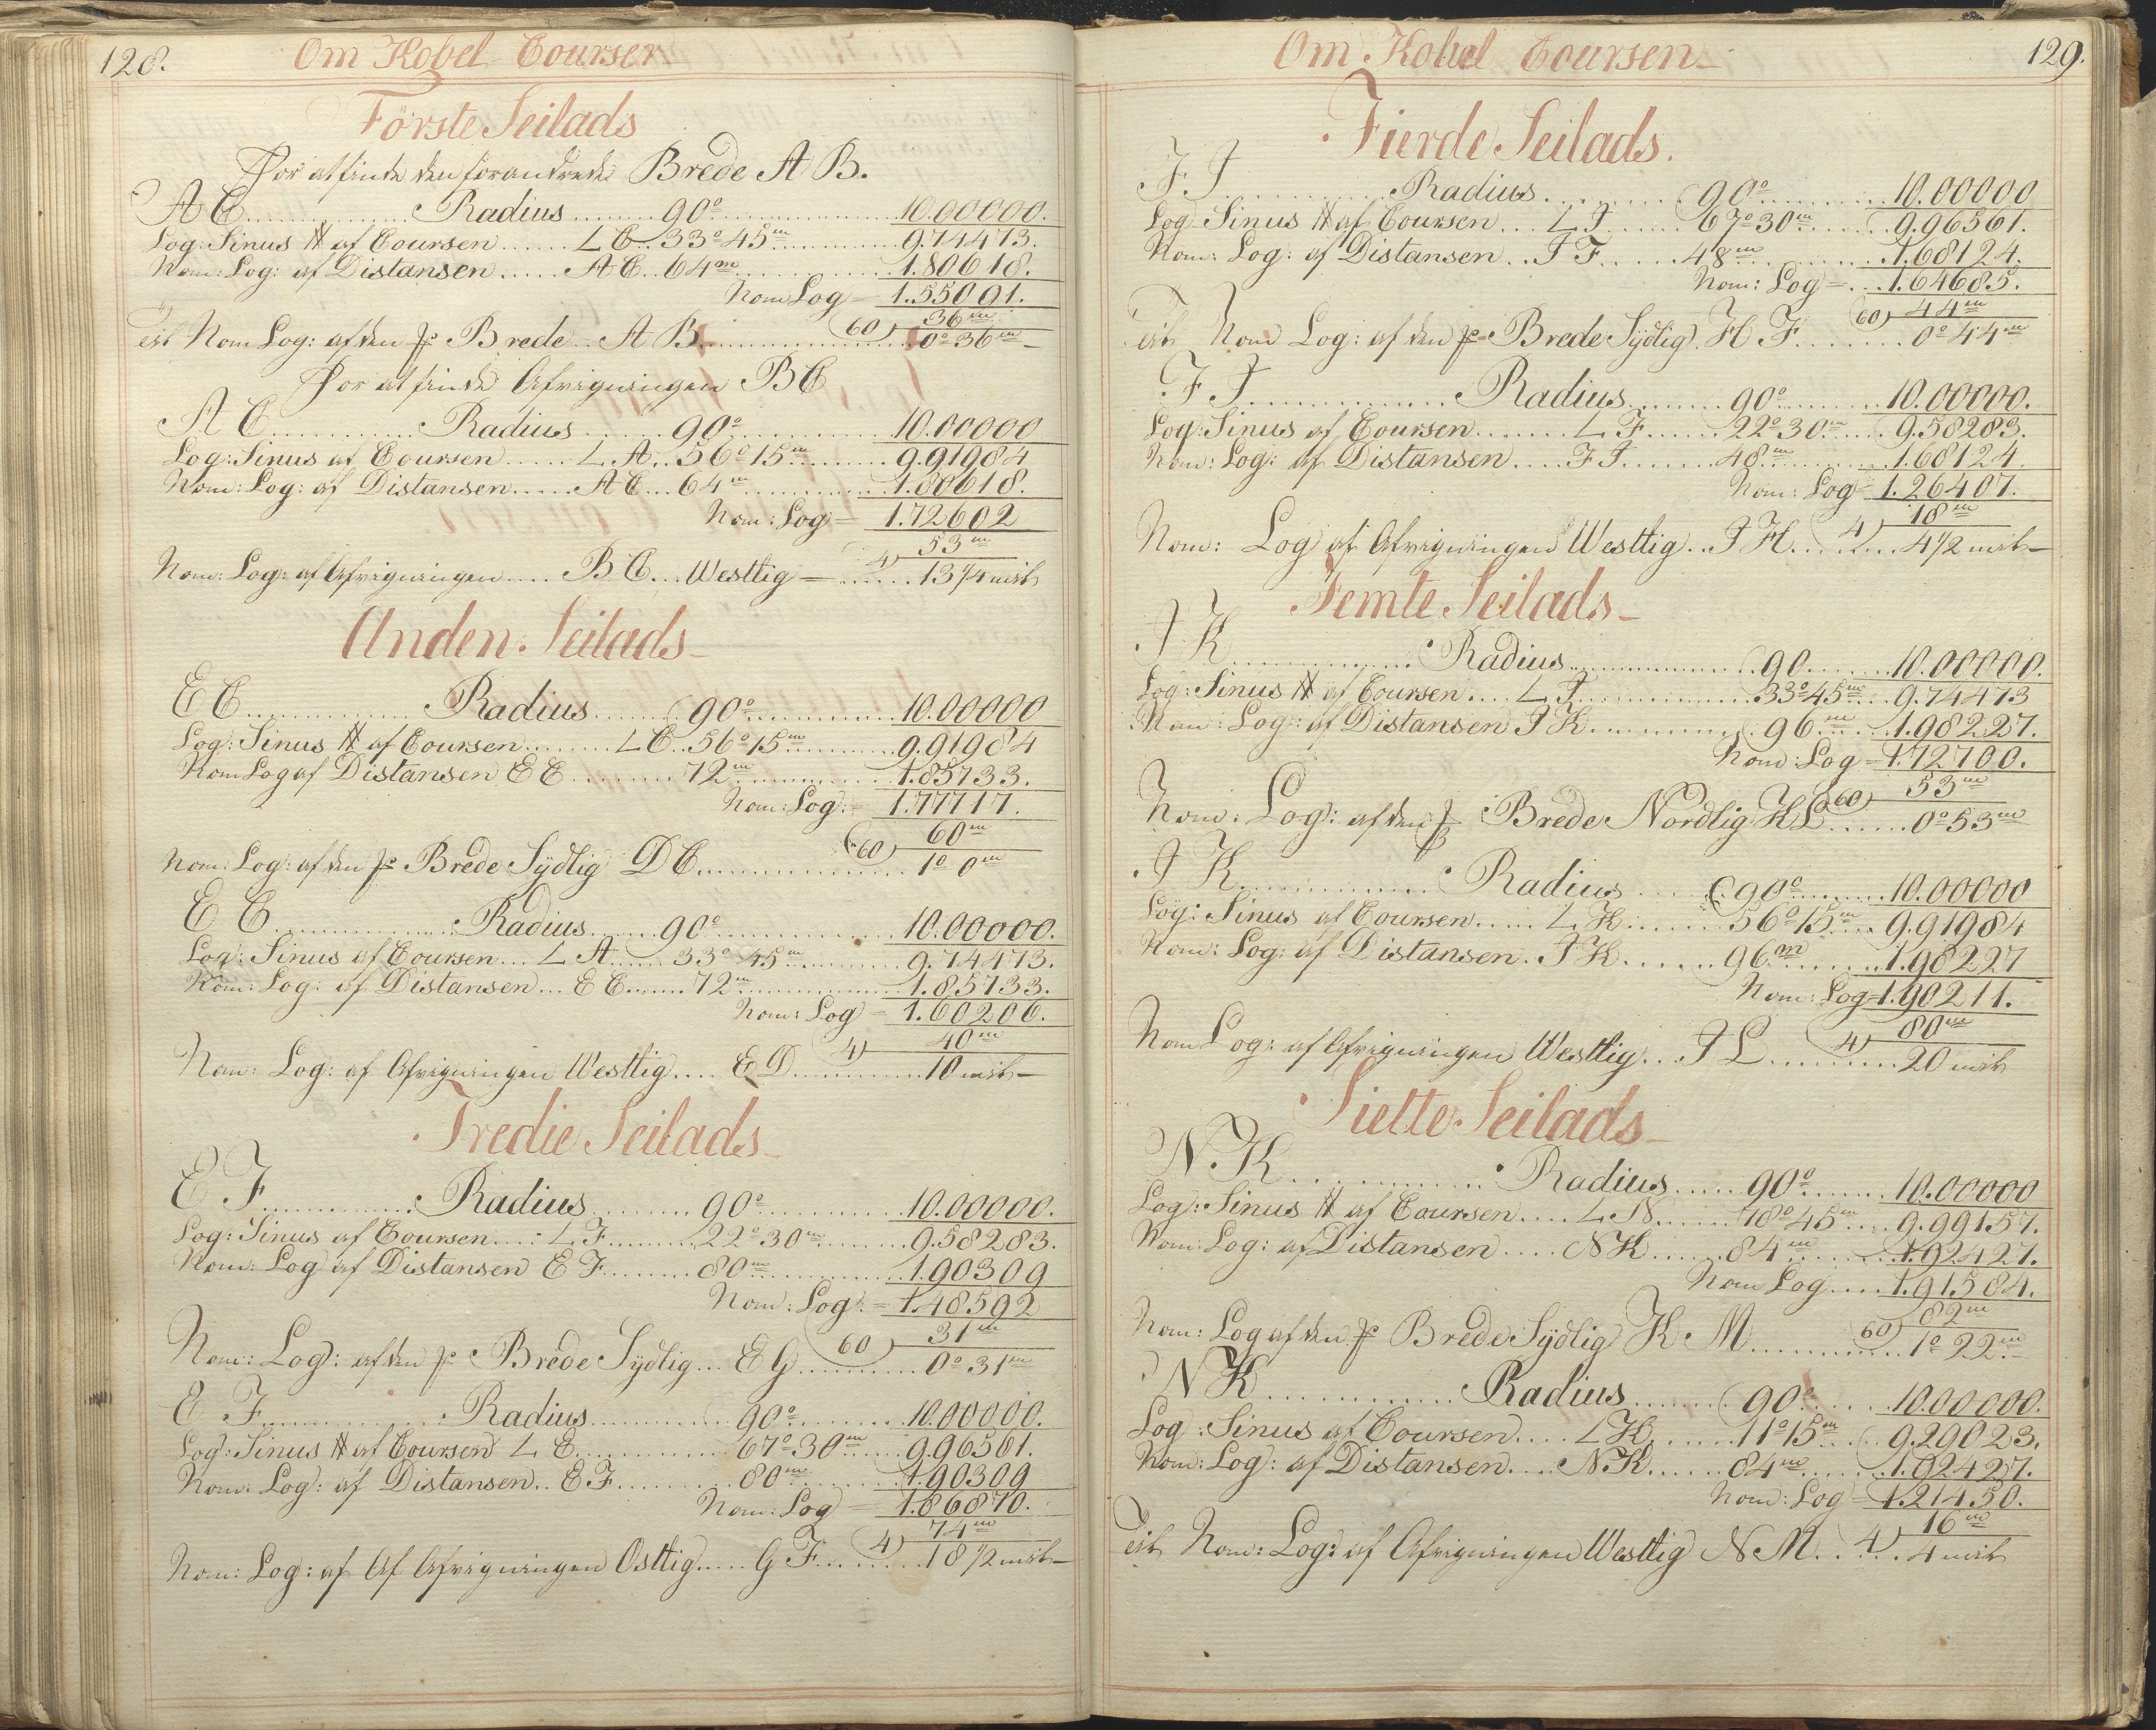 128.
Om Kobel Courser
Förste Seilads
For at finde den forandrede Brede A B.
A C ........ Radius ........ 90° ........ 10.00000.
Log: Sinus # af Coursen ...... L C .. 33° 45m ........ 9.74473.
Nom: Log: af Distansen ..... A C .. 64m ........ 1.80618.
Nom Log = 1.55091.
60) 36m
Nom Log: af den f: Brede .. A B ........ 0° 36m
For at finde Afvigningen B C
A C ........ Radius ...... 90° ........ 10.00000
Log: Sinus af Coursen ..... L. A .. 56° 15m ........ 9.91984
Nom: Log: af Distansen ..... A C ... 64m ........ 1.80618.
Nom: Log = 1.72602
4) 53m
Nom: Log: af Afvigningen .... B C ... Westlig = ...... 13 1/4 mil
Anden Seilads
E C ........ Radius ...... 90° ........ 10.00000
Log: Sinus # af Coursen ........ L C .. 56° 15m ........ 9.91984
Nom Log af Distansen E C ........ 72m ........ 1.85733.
Nom: Log: = 1.77717.
60) 60m
Nom: Log: af den f: Brede Sÿdlig D C ........ 1° 0m
E C ........ Radius ..... 90° ........ 10.00000.
Log: Sinus af Coursen ... L A ..... 33° 45m ........ 9.74473.
Nom: Log: af Distansen ... E C ...... 72m ........ 1.85733.
Nom: Log = 1.60206.
4) 40m
Nom: Log: af Afvigningen Westlig .... E D ........ 10 mil
Tredie Seilads
E F ........ Radius ........ 90° ........ 10.00000.
Log: Sinus af Coursen .... L F ........ 22° 30m ........ 9.58283.
Nom: Log af Distansen E F ........ 80m ........ 1.90309
Nom: Log: = 1.48592
60) 31m
Nom: Log: af den f: Brede Sÿdlig ... E G ........ 0° 31m
E F ........ Radius ........ 90° ........ 10.00000.
Log: Sinus # af Coursen L E ........ 67° 30m ..... 9.96561.
Nom: Log: af Distansen .. E F ........ 80m ........ 1.90309
Nom: Log = 1.86870.
4) 74m
Nom: Log: af Af Afvigningen Ostlig ..... G F ........ 18 1/2 mil
129.
Om Kobel Coursen
Fierde Seilads.
F J ........ Radius ........ 90° ........ 10.00000
Log Sinus # af Coursen ... L J ...... 67° 30m ...... 9.96561.
Nom: Log: af Distansen .. J F ..... 48m ........ 1.68124.
Nom: Log = ... 1.64685.
60) 44m
Nom Log: af den f: Brede Sÿdlig. H F ........ 0° 44m
F J ........ Radius ....... 90° ........ 10.00000.
Log: Sinus af Coursen ....... L F ...... 22° 30m ..... 9.58283.
Nom: Log: af Distansen .... F J ...... 48m ........ 1.68124.
Nom: Log = 1.26407.
4) 18m
Nom: Log af Afvigningen Westlig .. J H ........ 4 1/2 mil
Femte Seilads
J K ........ Radius ........ 90 ....... 10.00000.
Log: Sinus # af Coursen .... L J ........ 33° 45m ... 9.74473
Nom: Log: af Distansen J K ........ 96m ..... 1.98227.
Nom: Log = 1.72700.
60) 53m
Nom: Log: af den f: Brede Nordlig K L ...... 0° 53m
J K ........ Radius ..... 90° ........ 10.00000
Log: Sinus af Coursen ..... L K ....... 56° 15m ... 9.91984
Nom: Log: af Distansen . J K ...... 96m ........ 1.98227
Nom: Log = 1.90211.
4) 80m
Nom Log: af Afvigningen Westlig ... J L ........ 20 mil
Siette Seilads
N. K ........ Radius ..... 90° ....... 10.00000
Log: Sinus # af Coursen .... L N ...... 78° 45m .... 9.99157.
Nom: Log: af Distansen .... N K ...... 84m ........ 1.92427.
Nom Log .... 1.91584.
60) 82m
Nom: Log af den f: Brede Sÿdlig K. M ........ 1° 22m
N K ........ Radius ........ 90° ..... 10.00000.
Log: Sinus af Coursen .... L K ...... 11° 15m .... 9.29023.
Nom: Log: af Distansen .... N K ...... 84m ....... 1.92427.
Nom: Log = 1.21450.
4) 16m
Nom: Log: af Afvigningen Westlig N M ...... 4 mil